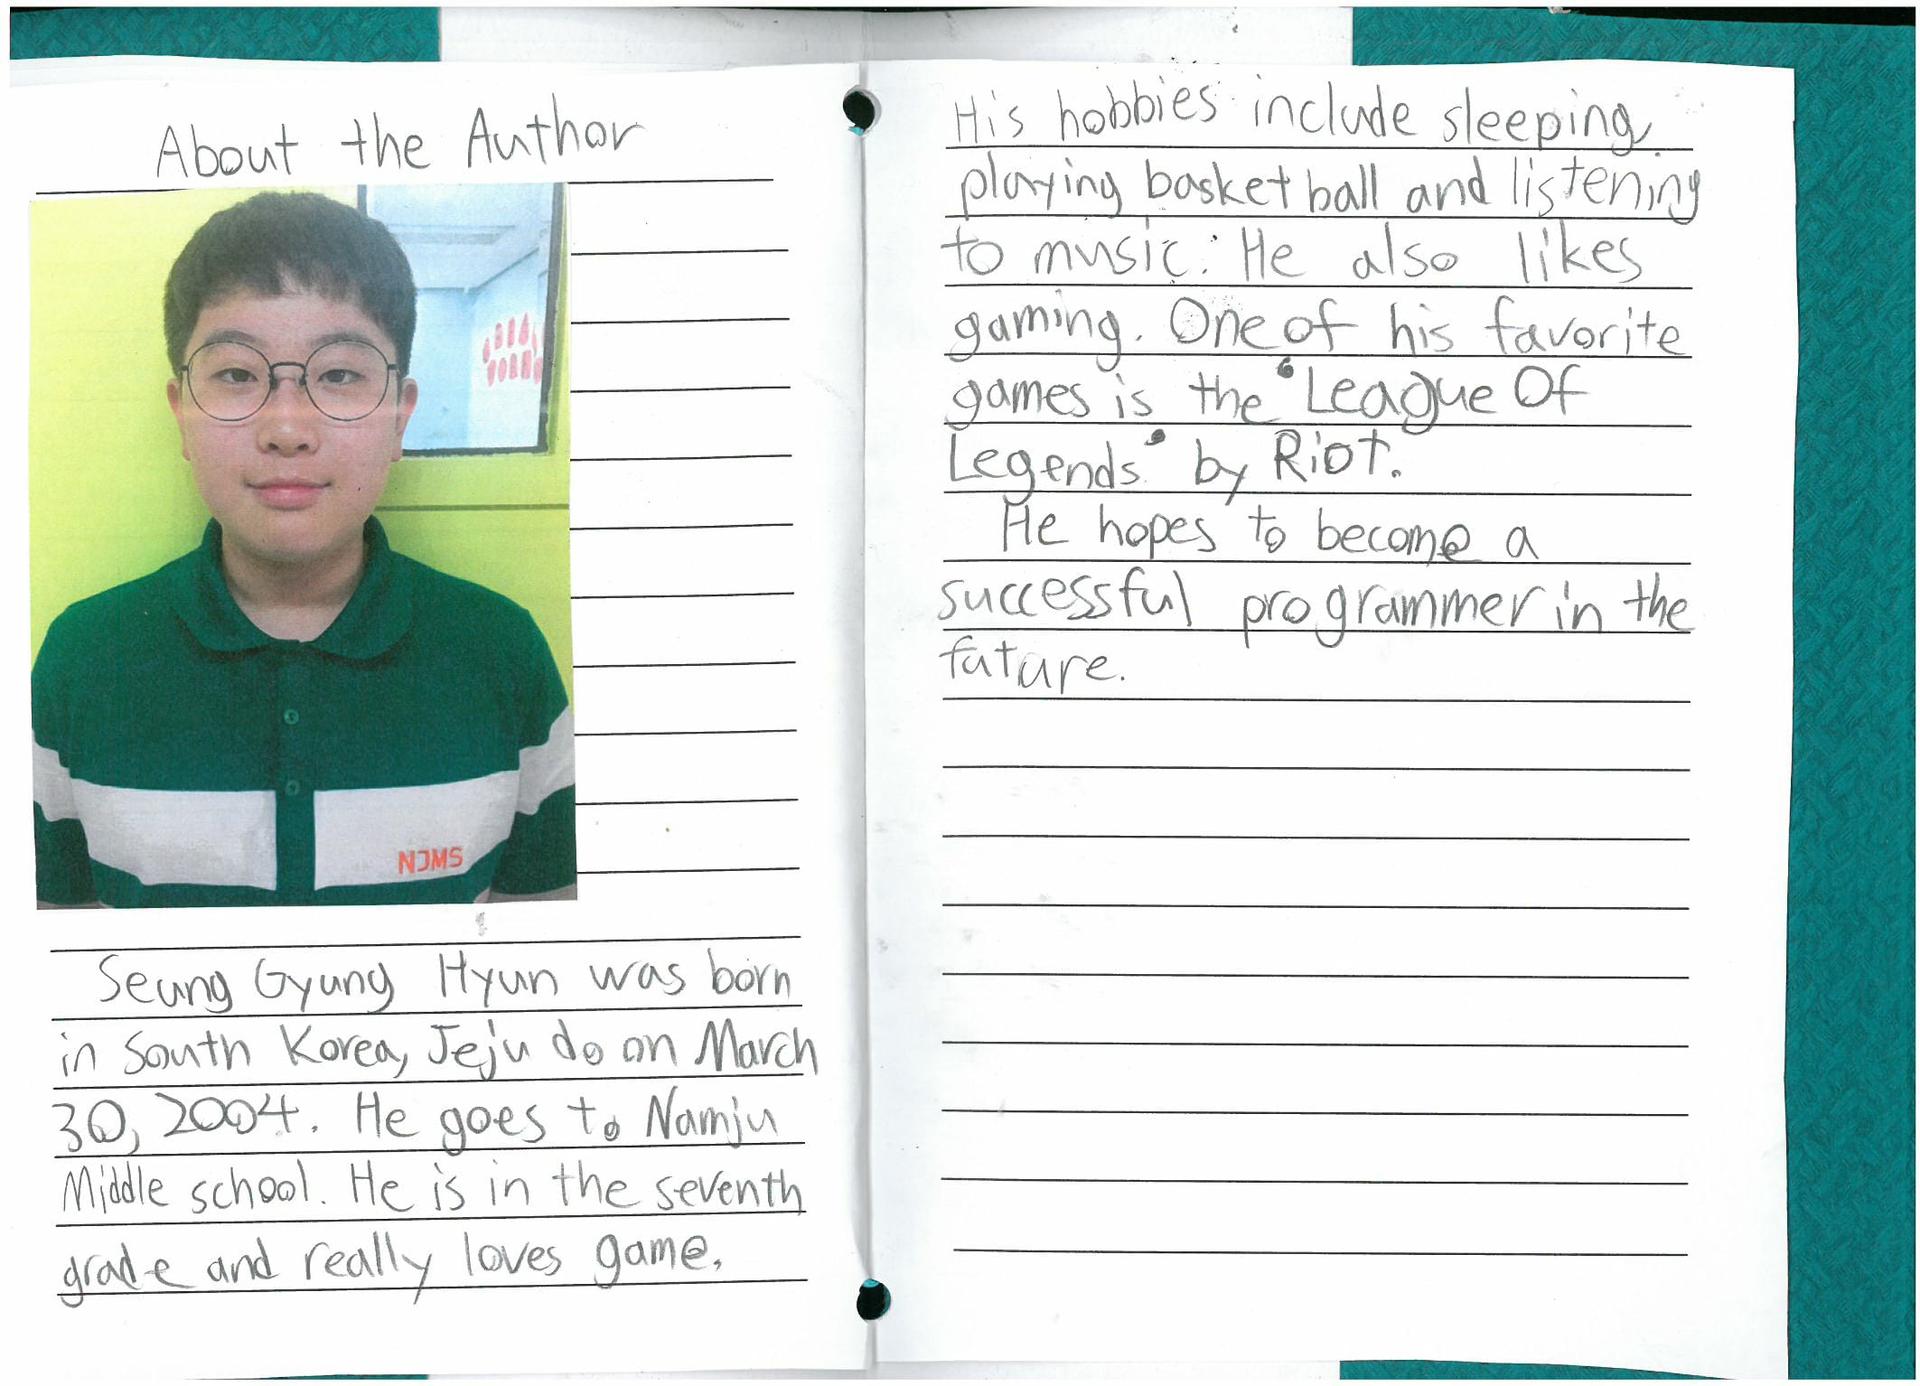 About the Author
NJMS
Seung Gyung Hyun was born
in South Korea, Jeju do on March
30, 2004. He goes to Namju
Middle school. He is in the seventh
grade and really loves game.
His hobbies include sleeping,
playing basketball and listening
to music. He also likes
gaming. One of his favorite
games is the "League Of
Legends" by Riot.
He hopes to become a
successful programmer in the
future.